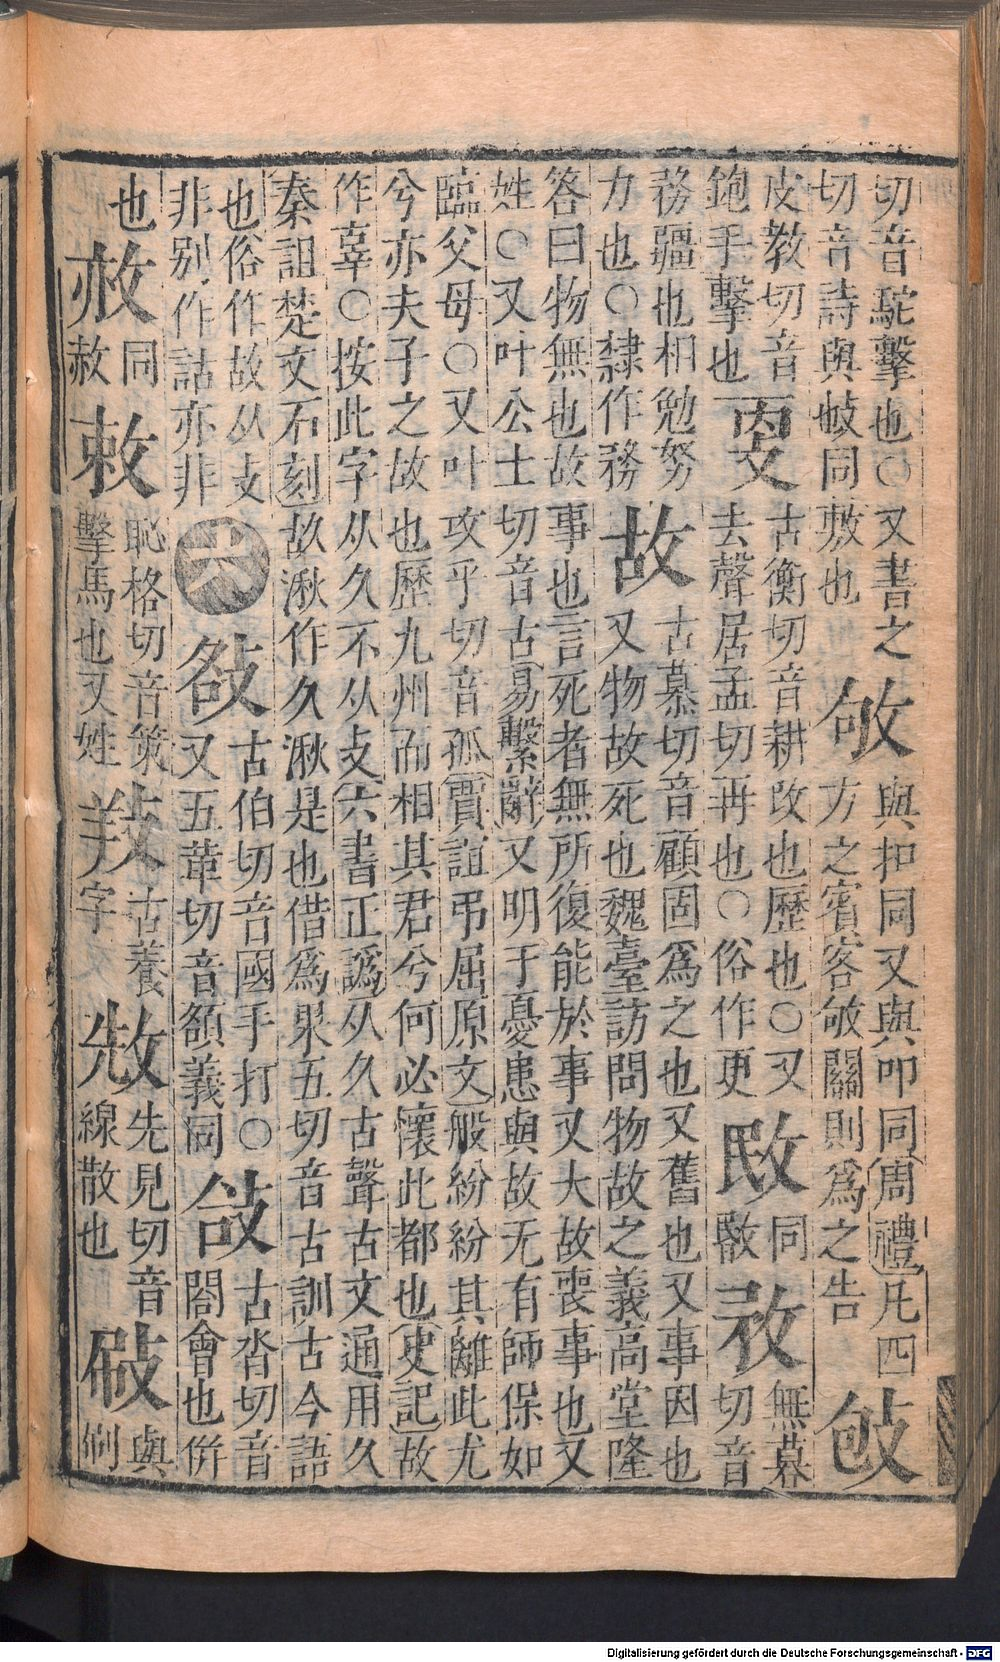 切音駝擊也○又書之㪁與扣同又與叩同周禮凡四
切音詩與㩼同敷也方之賓客㪁關則爲之告
皮教切音
鉋手擊也㪅古衡切音耕改也歷也○又
去聲居孟切再也○俗作更
同敯
無暮
切音
務彊也相勉努
力也○隸作務故古慕切音顧固爲之也又舊也又事因也
又物故死也魏臺訪問物故之義高堂隆
答曰物無也故事也言死者無所復能於事又大故喪事也又
姓○又叶公土切音古易繫辭又明于憂患與故无有師保如
臨父母○又叶攻乎切音孤賈誼弔屈原文般紛紛其離此尤
兮亦夫子之故也歷九州而相其君兮何必懷此都也史記故
作辜○按此字从久不从攴六書正譌从久古聲古文通用久
秦詛楚文石刻故湫作久湫是也借爲果五切音古訓古今語
也俗作故从支
非別作詁亦非
六
㪾古伯切音國手打○
又五革切音額義同
㪉古沓切音
閤會也併
也
㪨同
赦
敕恥格切音策
擊馬也又姓
古養
字
先見切音
線散也
與
例